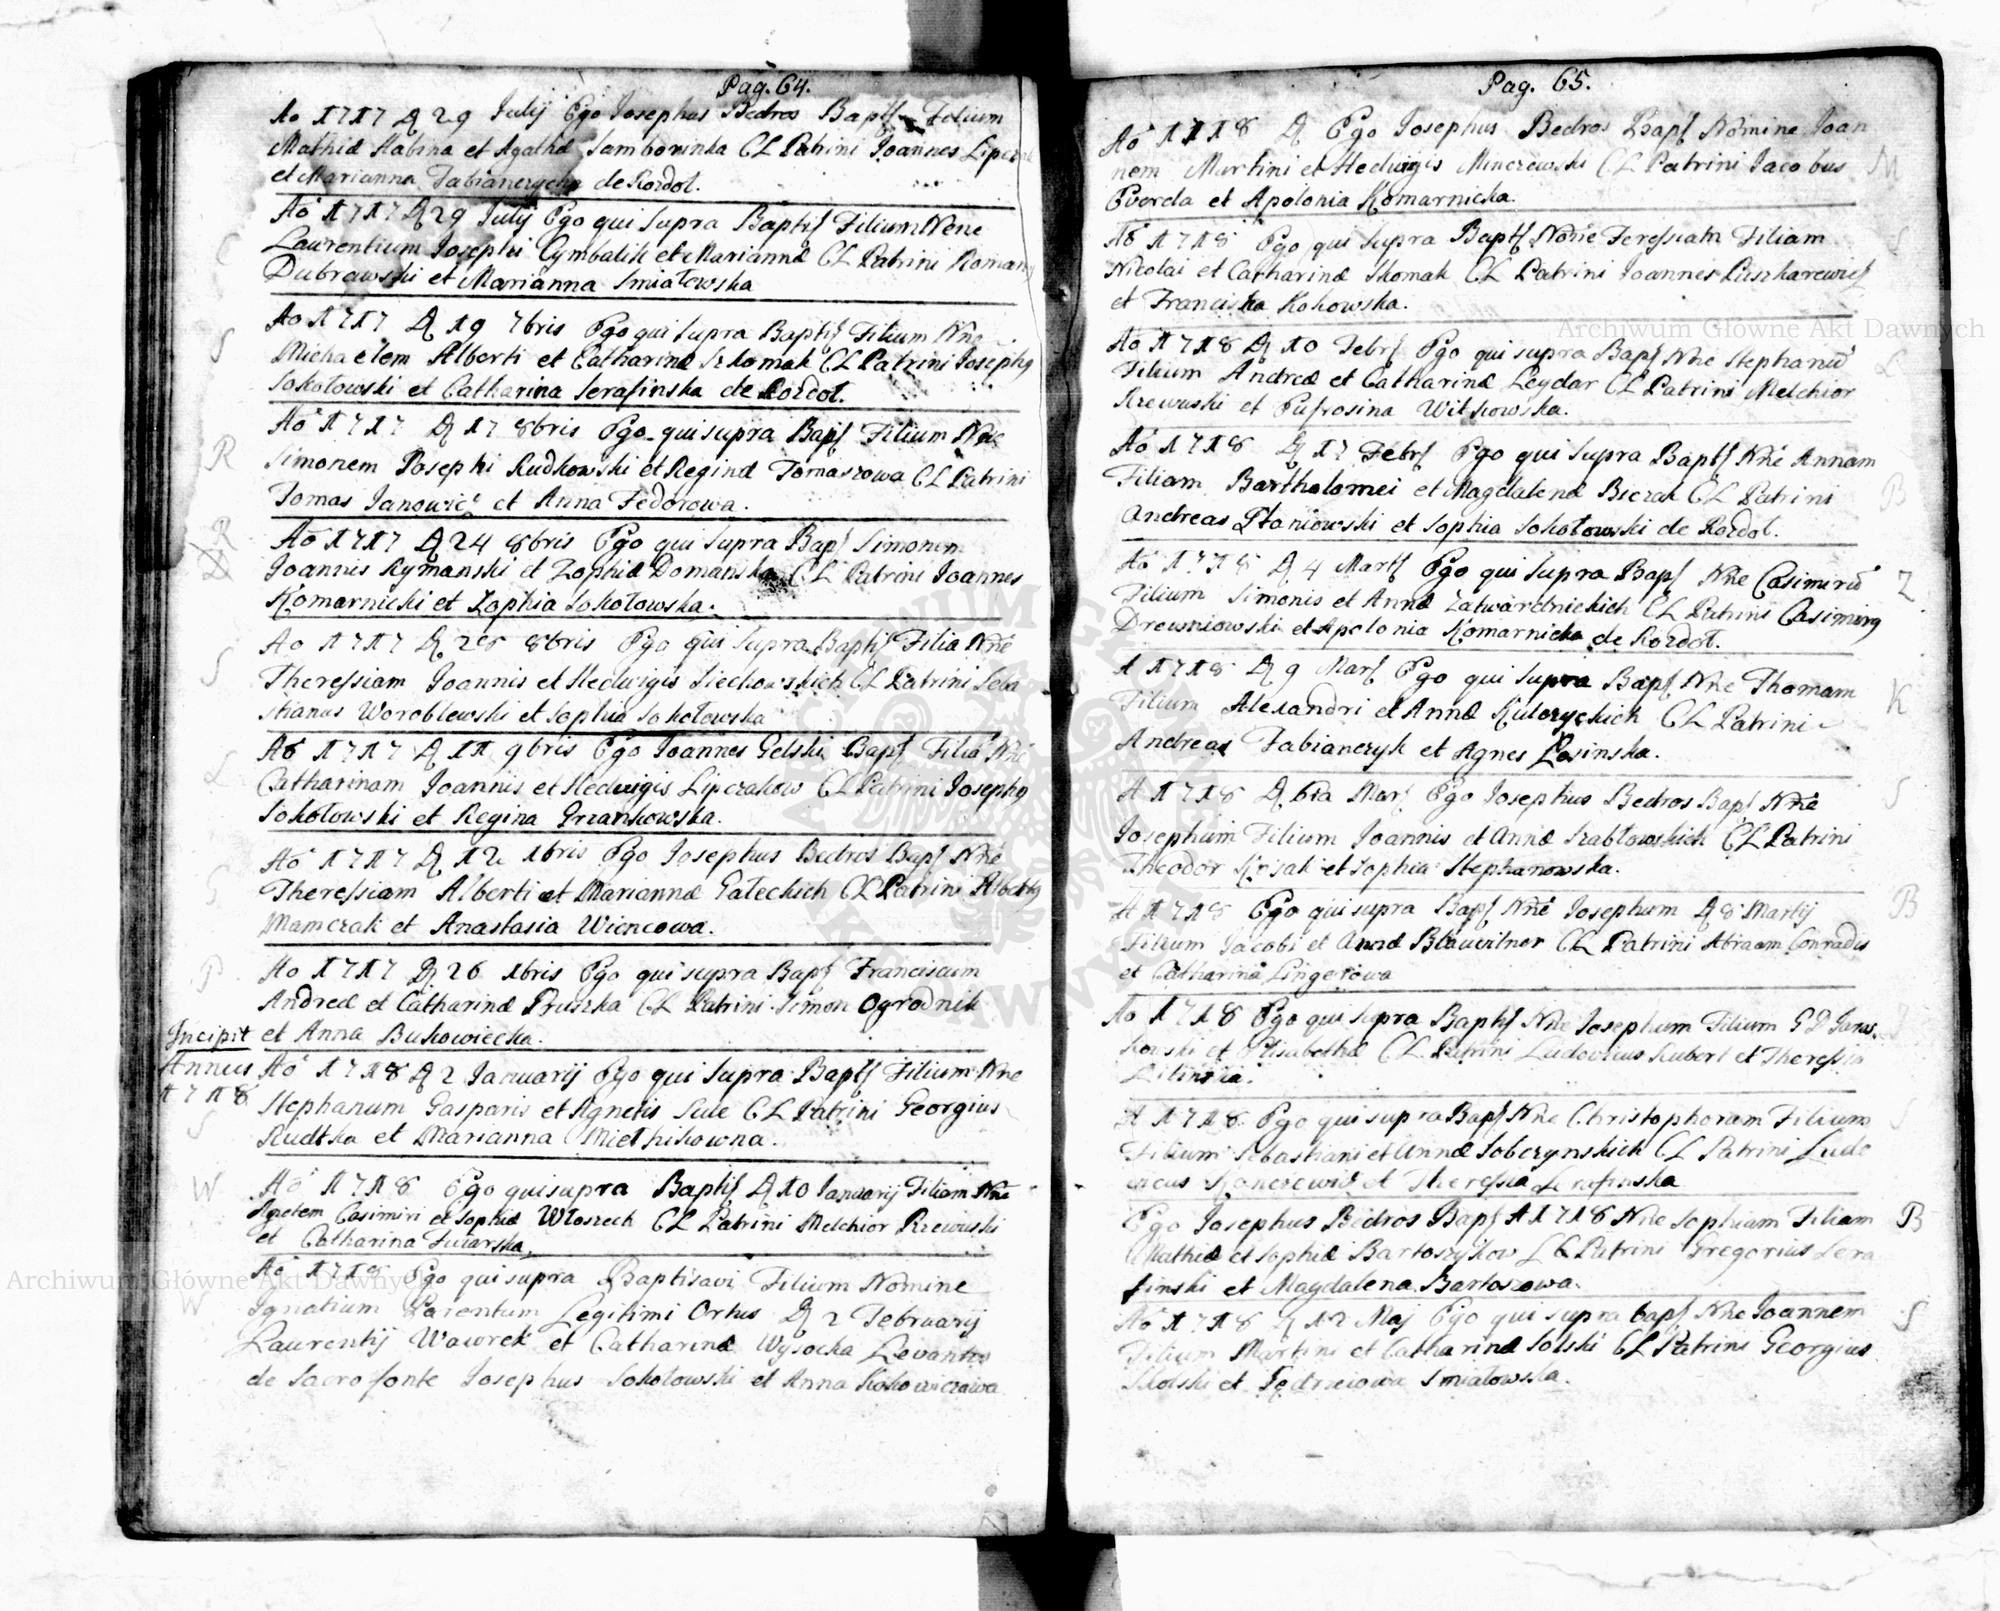 Pag. 64.
Ao 1717 D 29 Julij Ego Josephus Bedros Bapts Filium
Mathiæ Habina et Agathæ Samborinka CL Patrini Joannes Lipcza
et Marianna Fabianczycha de Kozdol.
Ao 1717 D 29 Julij Ego qui supra Baptis Filium Nene
Laurentium Josephi Cymbalik et Mariannæ CL Patrini Roman
Dubrawski et Marianna Smiałowska
C
Ao 1717 D 19 7bris Ego qui supra Baptis Filium Nne
Michaelem Alberti et Catharinæ Szkomak CL Patrini Joseph9
Sokołowski et Catharina Serafinska de Kozdol.
S
Ao 1717 D 17 8bris Ego qui supra Bapt Filium Nne
Simonem Josephi Rudkowski et Reginæ Tomaszowa CL Patrini
Tomas Janowic et Anna Fedorowa.
R
Ao 1717 D 24 8bris Ego qui supra Bapt Simonem
Joannis Rymanski et Zophiæ Domanska CL Patrini Joannes
Komarnicki et Zophia Sokołowska.
R
Ao 1717 D 28 8bris Ego qui supra Baptis Filia Nne
Theressiam Joannis et Hedwigis Siechowskich CL Patrini Seba
stianus Woroblewski et Sophia Sokołowska
S
Ao 1717 D 11 9bris Ego Joannes Gelski Bapt Filia Nne
Catharinam Joannis et Hedwigis Lipczakow CL Patrini Joseph9
Sokołowski et Regina Grzankowska.
L
Ao 1717 D 12 xbris Ego Josephus Bedros Bapt Nne
Theressiam Alberti et Mariannæ Gałeckich CL Patrini Albert9
Mamczak et Anastasia Wiencowa.
G
Ao 1717 D 26 xbris Ego qui supra Bapt Franciscum
Andreæ et Catharinæ Pruszka CL Patrini Simon Ogrodnik
et Anna Bukowiecka.
P
Incipit
Annus
1718
Ao 1718 D 2 Januarij Ego qui supra Bapts Filium Nne
Stephanum Gasparis et Agnetis Sule CL Patrini Georgius
Rudtka et Marianna Miethikowna.
S
Ao 1718 Ego qui supra Baptis D 10 Januarij Filiam Nne
Agnetem Casimiri et Sophiæ Włoszech CL Patrini Melchior Rzewuski
et Catharina
W
Ao 1718 Ego qui supra Baptisavi Filium Nomine
Ignatium Parentum Legitimi Ortus D 2 Februarij
Laurentij Wawrek et Catharinæ Wysocka Levantes
de Sacro fonte Josephus Sokołowski et Anna
W
Pag. 65.
Ao 1718 D Ego Josephus Bedros Bapt Nomine Joan
nem Martini et Hedwigis Minczewski CL Patrini Jacobus
Pworda et Apolonia Komarnicka.
M
Ao 1718 Ego qui supra Bapts Nome Teressiam Filiam
Nicolai et Catharinæ Skomak CL Patrini Joannes Puszkarewics
et Franciska Kokowska.
S
Ao 1718 D 10 Febrs Ego qui supra Bapt Nne Stephanu
Filium Andreæ et Catharinæ Leydar CL Patrini Melchior
Rzewuski et Eufrosina Witkowska.
L
Ao 1718 D 17 Febrs Ego qui supra Bapts Nne Annam
Filiam Bartholomei et Magdalenæ Biczak CL Patrini
Andreas Staniowski et Sophia Sokołowski de Kozdol.
B
Ao 1718 D 4 Marts Ego qui supra Bapt Nne Casimiru
Filium Simonis et Annæ Zatwardnickich CL Patrini Casimir9
Drewniowski et Apolonia Komarnicka de Kozdol.
Z
A 1718 D 9 Mars Ego qui supra Bapt Nne Thomam
Filium Alexandri et Annæ Kulczyckich CL Patrini
Andreas Fabianczyk et Agnes Łosinska.
K
A 1718 D 6ta Mars Ego Josephus Bedros Bapt Nne
Josephum Filium Joannis et Annæ Szabłowskich CL Patrini
Theodor Kosak et Sophia Stephanowska.
S
A 1718 Ego qui supra Bapt Nne Josephum D 8 Martij
Filium Jacobi et Annæ CL Patrini Abraam Conradis
et Catharina Lingerowa
B
Ao 1718 Ego qui supra Baptis Nne Josephum Filium Jaros
kowski et Elisabethæ CL Patrini Ludovicus Kubert et Theressia
A 1718 Ego qui supra Bapt Nne Christophorum Filium
Filium Sebastiani et Annæ Sobczynskich CL Patrini Ludo
vicus et Theressia Serafinska
S
Ego Josephus Bedros Bapt A 1718 Nne Sophiam Filiam
Mathiæ et Sophiæ Bartoszykow CL Patrini Gregorius Sera
finski et Magdalena Bartoszowa.
B
Ao 1718 D 12 Maj Ego qui supra bapt Nne Joannem
Filium Martini et Catharinæ Solski CL Patrini Georgius
Skolski et Jędrzeiowa Smiałowska.
S
Archiwum Główne Akt Dawnych
Archiwum Główne Akt Dawnych
ARCHIWUM GŁÓWNE AKT DAWNYCH